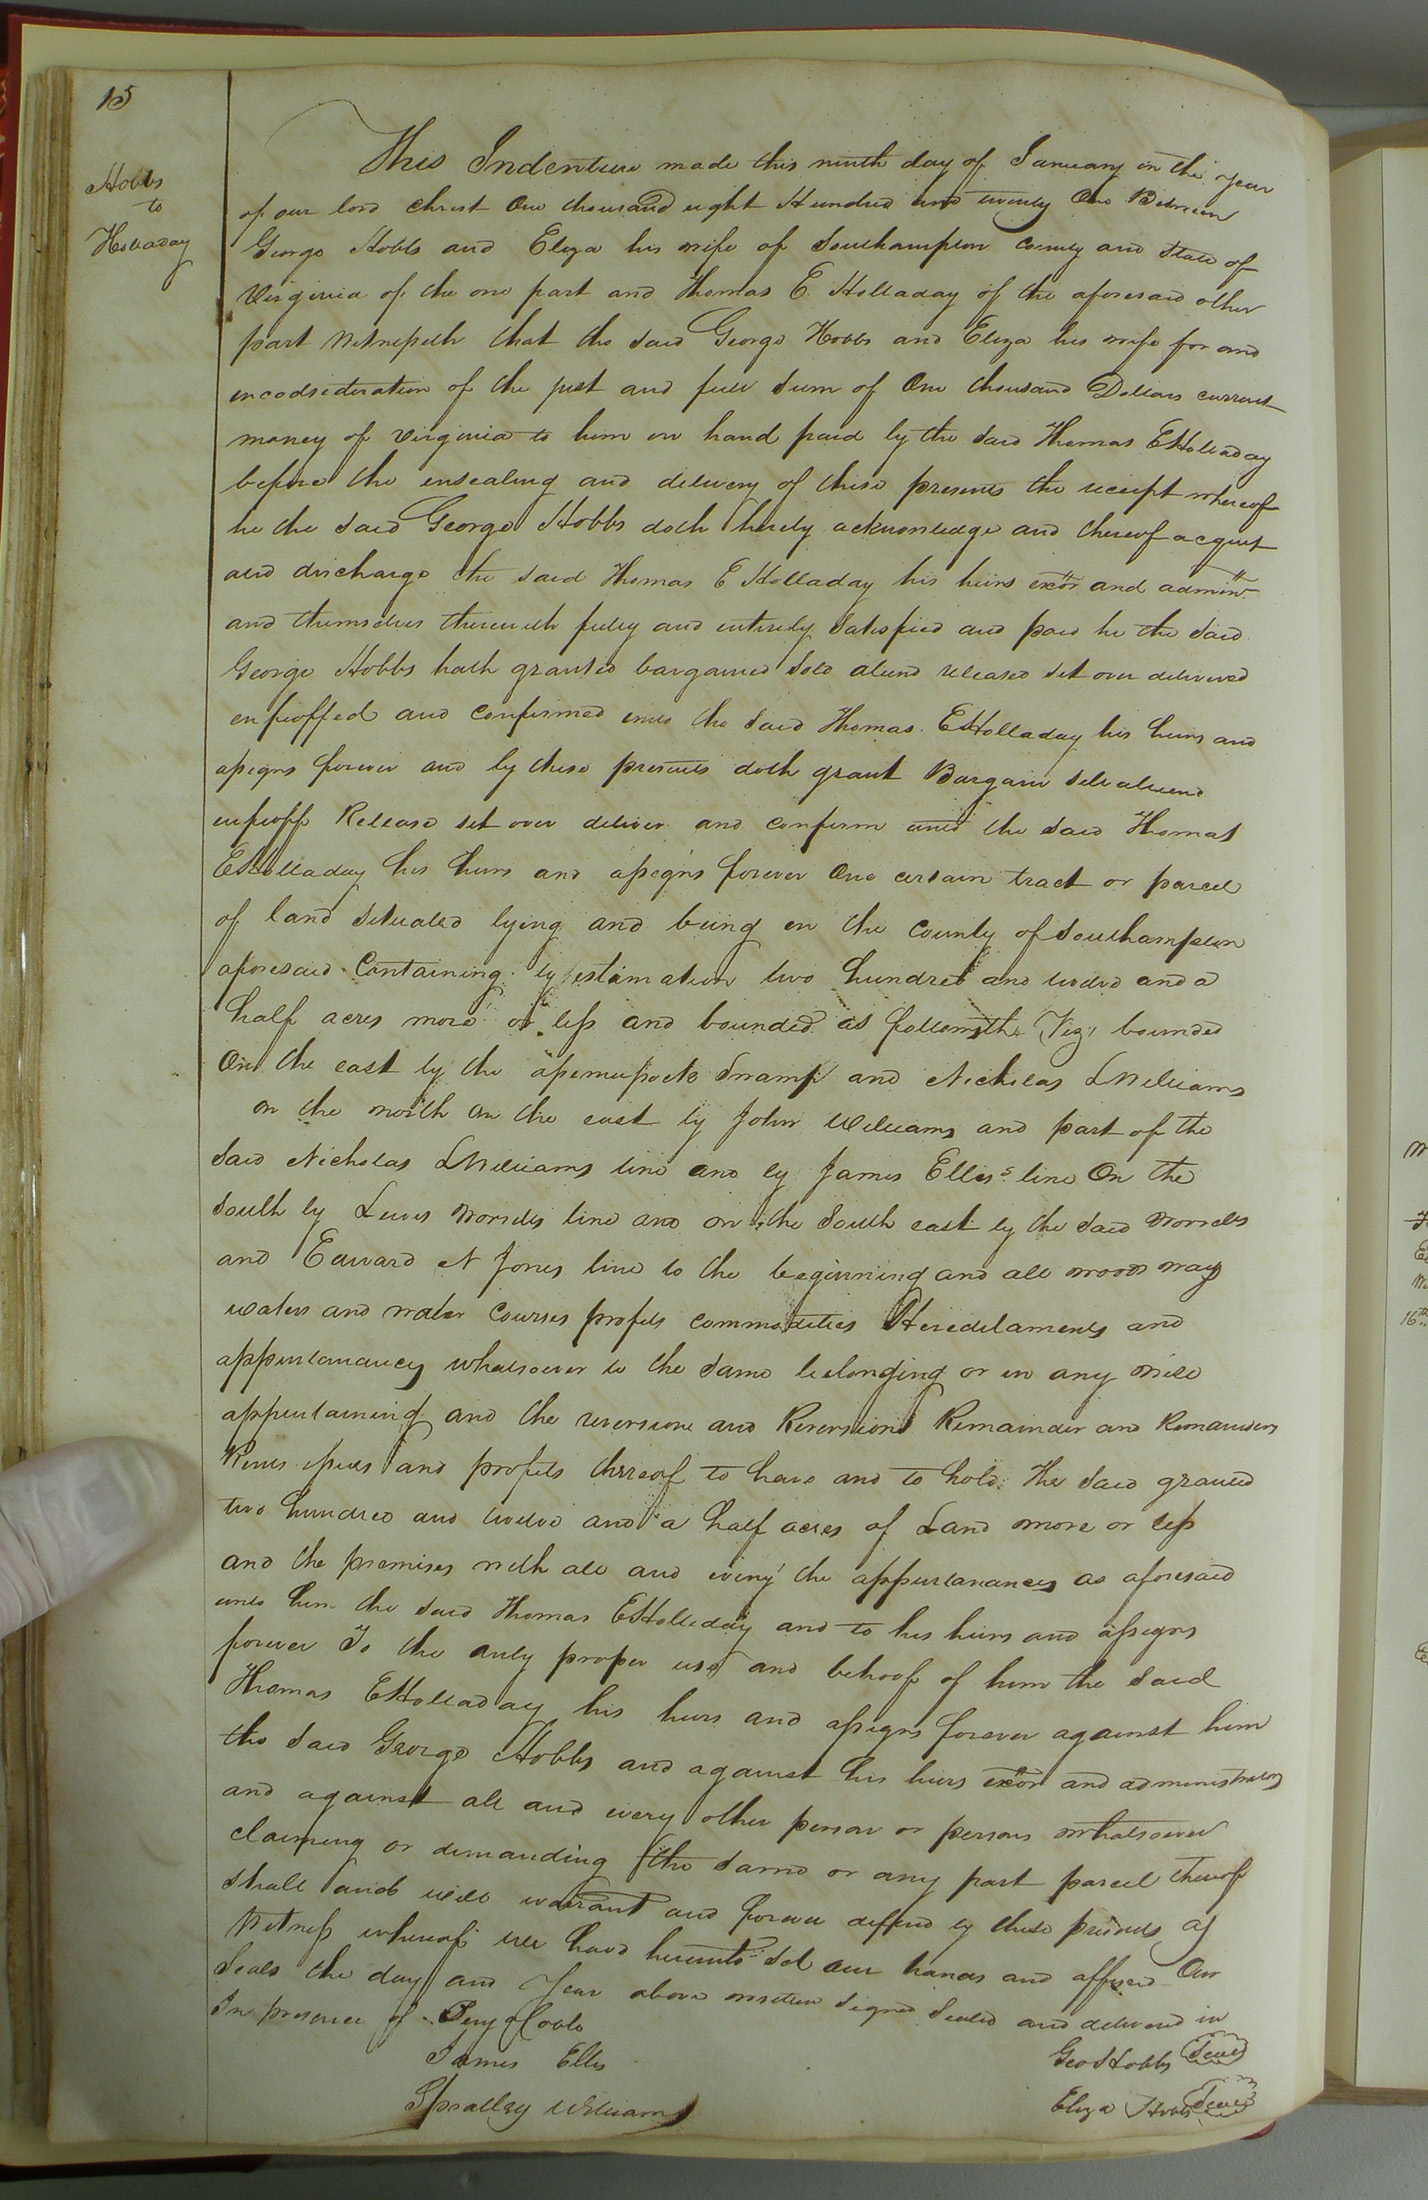 15
Hobbs
to
Holladay
This Indenture made this ninth day of January in the year
of our lord Christ One thousand eight Hundred and twenty One Between
George Hobbs and Eliza his wife of Southampton County and State of
Virginia of the one part and Thomas E Holladay of the aforesaid other
part Witnesseth that the said George Hobbs and Eliza his wife for and
in codsideration of the just and full sum of One thousand Dollars current
money of Virginia to him in hand paid by the said Thomas E Holladay
before the ensealing and delivery of these presents the receipt whereof
he the said George Hobbs doth hereby acknowledge and thereof acquit
and discharge the said Thomas E Holladay his heirs exōr and admin
and themselves therewith fully and entirely satisfied and paid he the said
George Hobbs hath granted bargained sold aliend released set over delivered
enfeoffed and confirmed unto the said Thomas E Holladay his heirs and
assigns forever and by these presents doth grant Bargain sell aliene
enfeoff Release set over deliver and confirm unto the said Thomas
E Holladay his heirs and assigns forever One certain tract or parcel
of land situated lying and being in the county of Southampton
aforesaid Containing by estimation two hundred and twelve and a
half acres more or less and bounded as followeth Viz, bounded
On the east by the Swamp and Nicholas L Williams
on the north on the east by John Williams and part of the
said Nicholas L Williams line and by James Ellis's line On the
south by Lewis Worrells line and on the South east by the said Worrells
and Edward N Jones line to the beginning and all woods ways
waters and water Courses profits commodities Hereditaments and
appurtanances whatsoever to the same belonging or in any wise
appertaining and the reversione and Reversions Remainder and Remainders
Rents issues and profits thereof to have and to hold. The said granted
two hundred and twelve and a half acres of Land more or less
and the premises with all and every the appurtanances as aforesaid
unto him the said Thomas E Holladay and to his heirs and assigns
forever To the only proper use and behoof of him the said
Thomas E Holladay his heirs and assigns forever against him
the said George Hobbs and against his heirs exōr and administrators
and against all and every other person or persons whatsoever
claiming or demanding the same or any part parcel thereof
shall and will warrant and forever defend by these presents as
Witness whereof we have hereunto set our hands and affixed Our
Seals the day and Year above written Signed Sealed and delivered in
In presence of Benj Cobb
James Ellis
Spratley Williams
Geo Hobbs Seal
Eliza Hobbs Seal